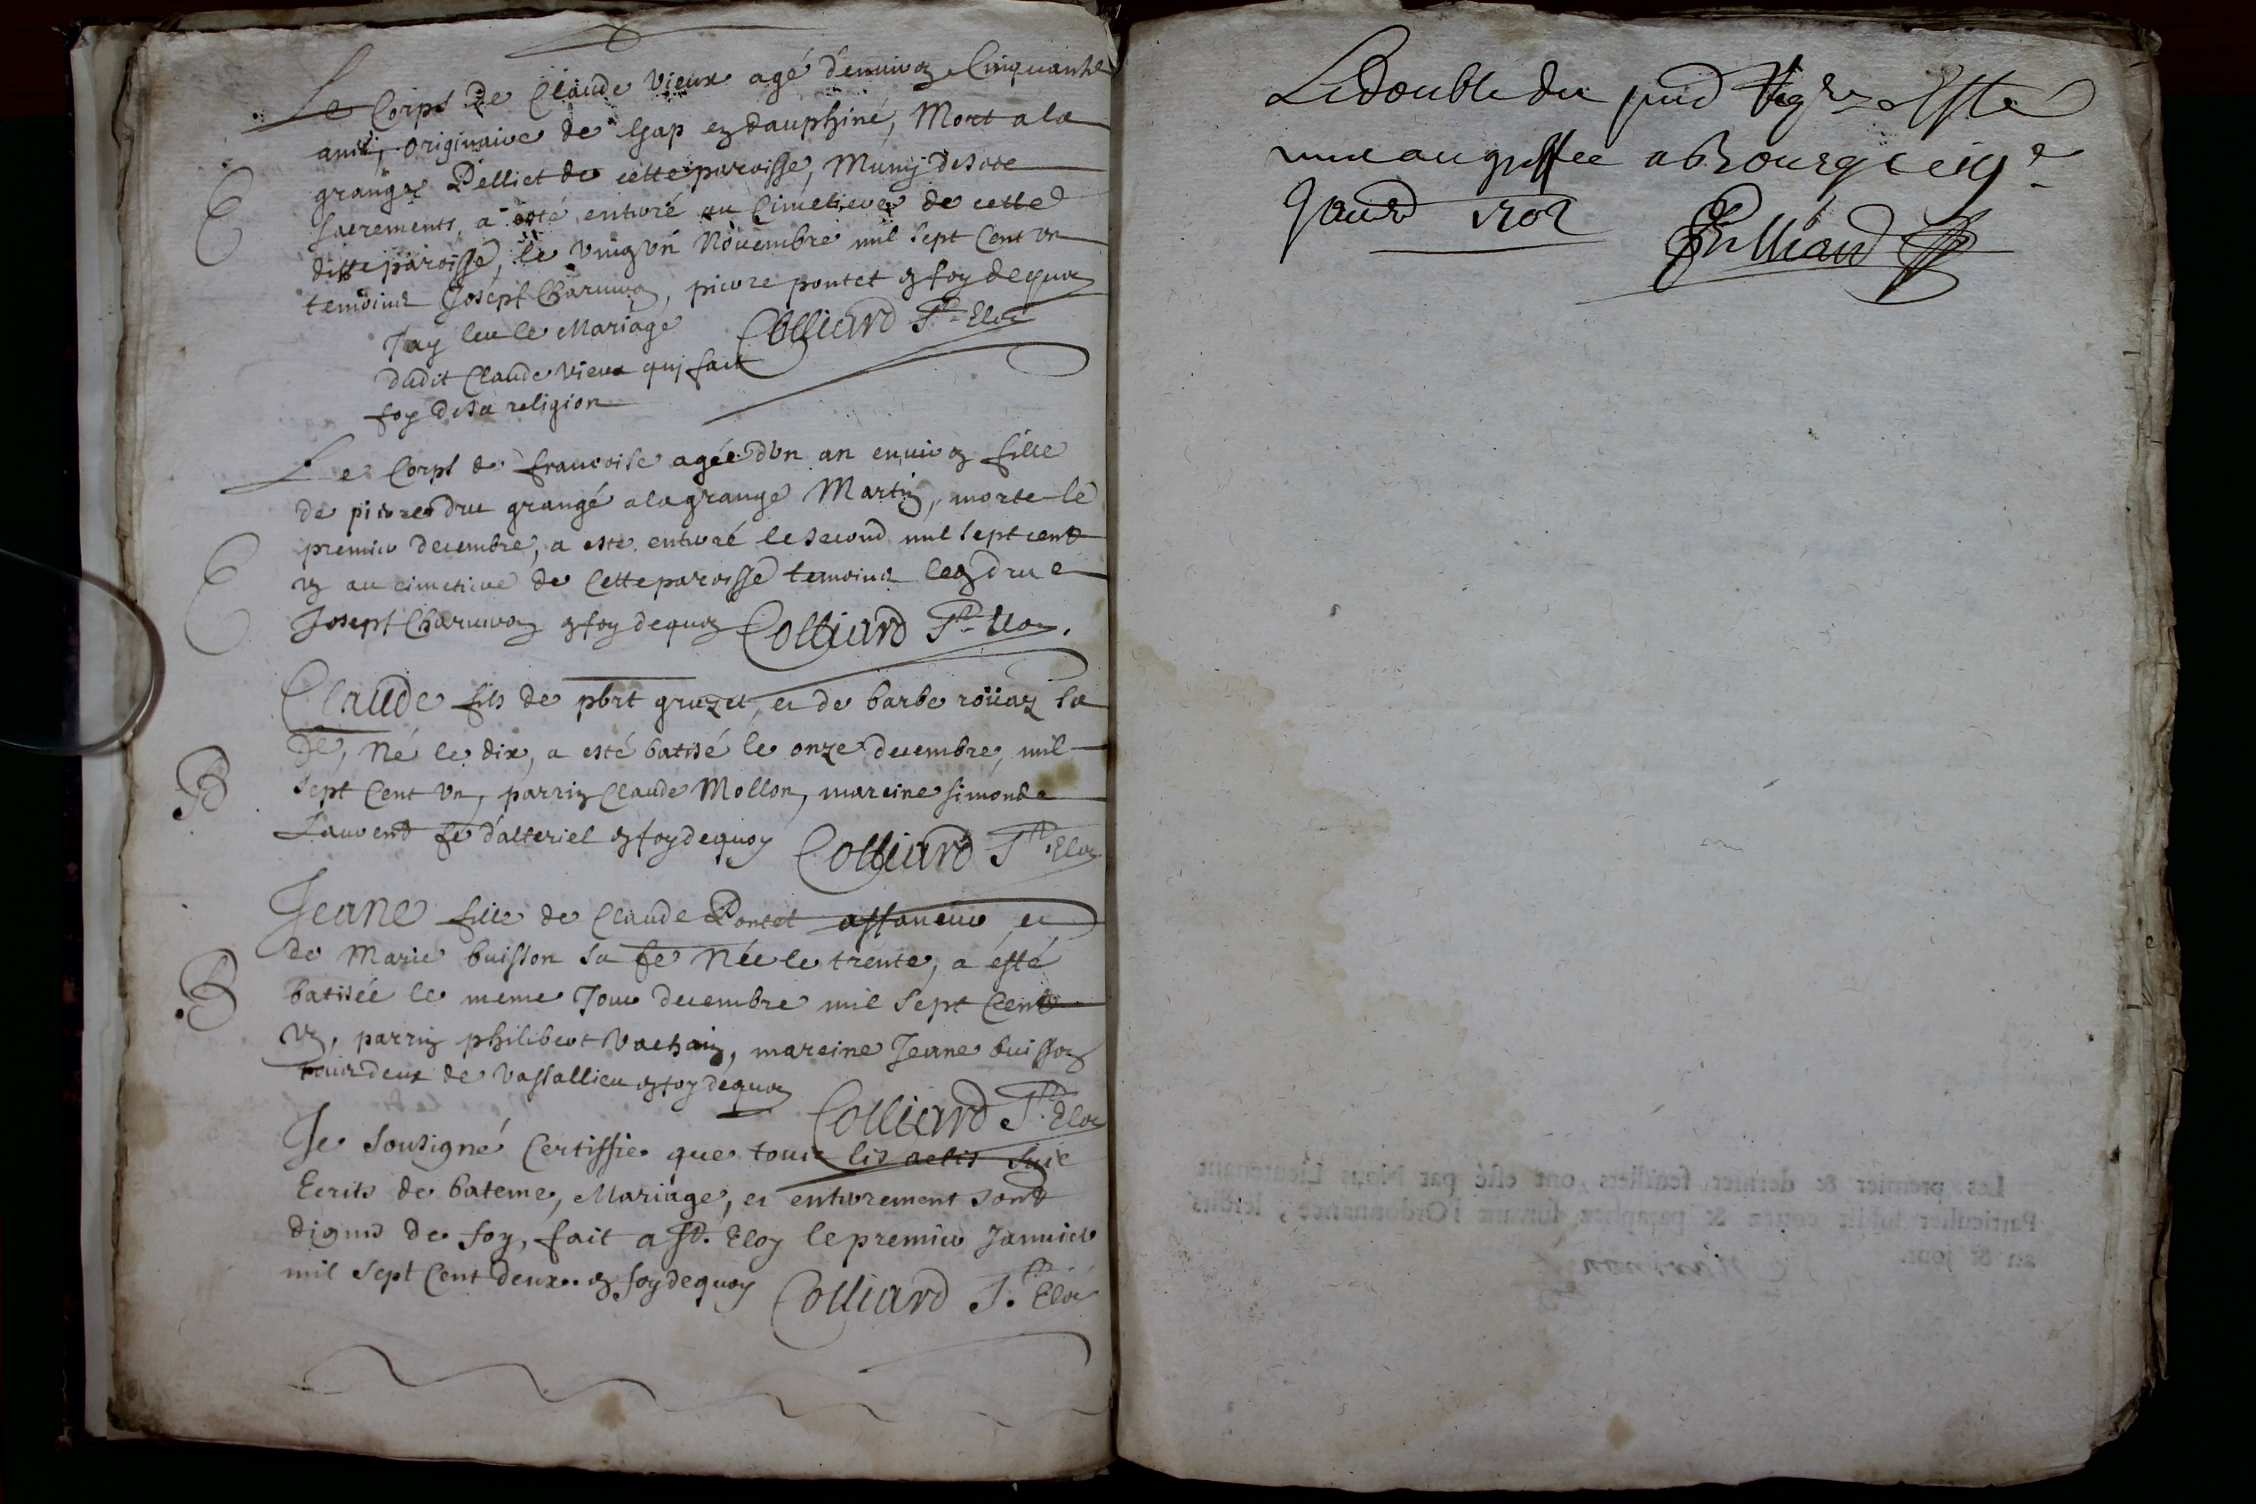 Le Corps de Claude Vieux agé d'enuiron Cinquante
ans, originaire de Gap en dauphiné, Mort a la
grange Pelliet de cette paroisse, Muny de sote
sacrements, a esté enterré au Cimetiere de cette
ditte paroisse, le vingt vn Nouembre mil sept Cent vn
temoins Joseph Charuron, pierre pontet en foy dequoy
Colliard St Eloi
J'ay leu le Mariage
dudit Claude vieux qui fait
foy de sa religion
E
Le Corps de francoise agée d'vn an enuiron fille
de pierre dru grangé a la grange Martin, morte le
premier decembre, a esté enterré le second mil sept cent
vn au cimetiere de cette paroisse temoins leon dru e
Joseph Charuron en foy dequoy Colliard St Eloi
E
Claude fils de pbrt gruzet, et de barbe roüaz sa
fe, Né le dix, a esté batisé le onze decembre, mil
sept Cent vn, parrin Claude Mollon, mareine simonde
Laurent fe d'alteriel en foy dequoy Colliard St Eloi
B
Jeane fille de Claude Pontet affaneur et
de Marie buisson sa fe Née le trente, a esté
batisée le meme Jour decembre mil sept Cent
vn, parrin philibert Vachon, mareine Jeane buisson
tous deux de vassallieu en foy dequoy
Colliard St Eloi
B
Je sousigné Certiffie que tous les actes suis
Ecrits de bateme, Mariage, et enterrement sont
dignes de foy, fait a St. Eloy le premier Januier
mil sept Cent deux en foy dequoy Colliard St. Eloi
Le double du pnt Regre a Esté
mis au greffe a Bourg ce 14e
Januier 1702
Les premier & dernier feuillets ont esté par Nous Lieutenant
Particulier susdit cottez & paraphez suivant l'Ordonnance, lesdits
an & jour.